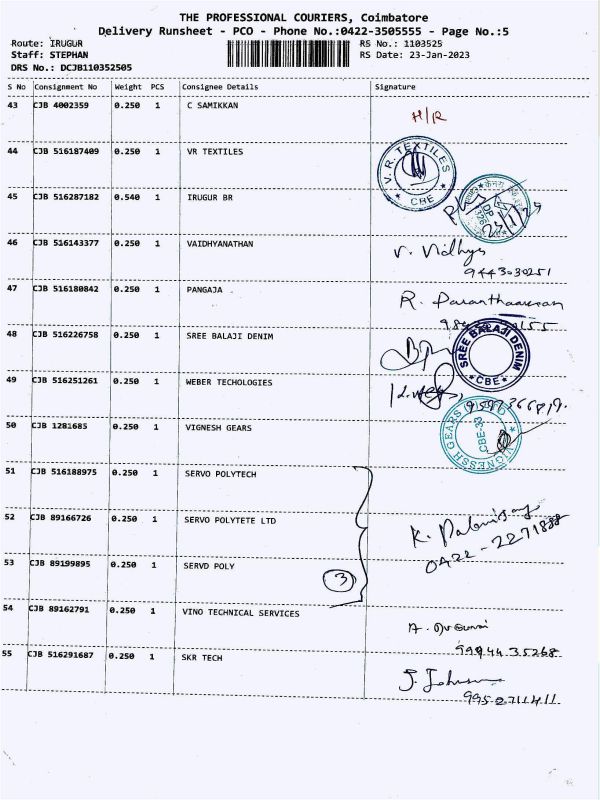 THE PROFESSIONAL COURIERS, Coimbatore
Delivery Runsheet - PCO - Phone No.:0422-3505555 - Page No.:5
Route: IRUGUR RS No.: 1103525
Staff: STEPHAN RS Date: 23-Jan-2023
DRS No.: DCJB110352505
S No Consignment No Weight PCS Consignee Details Signature
43 CJB 4002359 0.250 1 C SAMIKKAN
H/R
44 CJB 516187409 0.250 1 VR TEXTILES
V. R. TEXTILES CBE
45 CJB 516287182 0.540 1 IRUGUR BR
46 CJB 516143377 0.250 1 VAIDHYANATHAN
V. Vidhya
9443030251
47 CJB 516180842 0.250 1 PANGAJA
R.
48 CJB 516226758 0.250 1 SREE BALAJI DENIM
SREE BALAJI DENIM CBE
49 CJB 516251261 0.250 1 WEBER TECHOLOGIES
50 CJB 1281685 0.250 1 VIGNESH GEARS
VIGNESSH GEARS CBE-33
51 CJB 516188975 0.250 1 SERVO POLYTECH
52 CJB 89166726 0.250 1 SERVO POLYTETE LTD
K. Palanisamy
0422-2271888
53 CJB 89199895 0.250 1 SERVD POLY
3
54 CJB 89162791 0.250 1 VINO TECHNICAL SERVICES
A.
99944 35268
55 CJB 516291687 0.250 1 SKR TECH
J. Johnson
9952711411